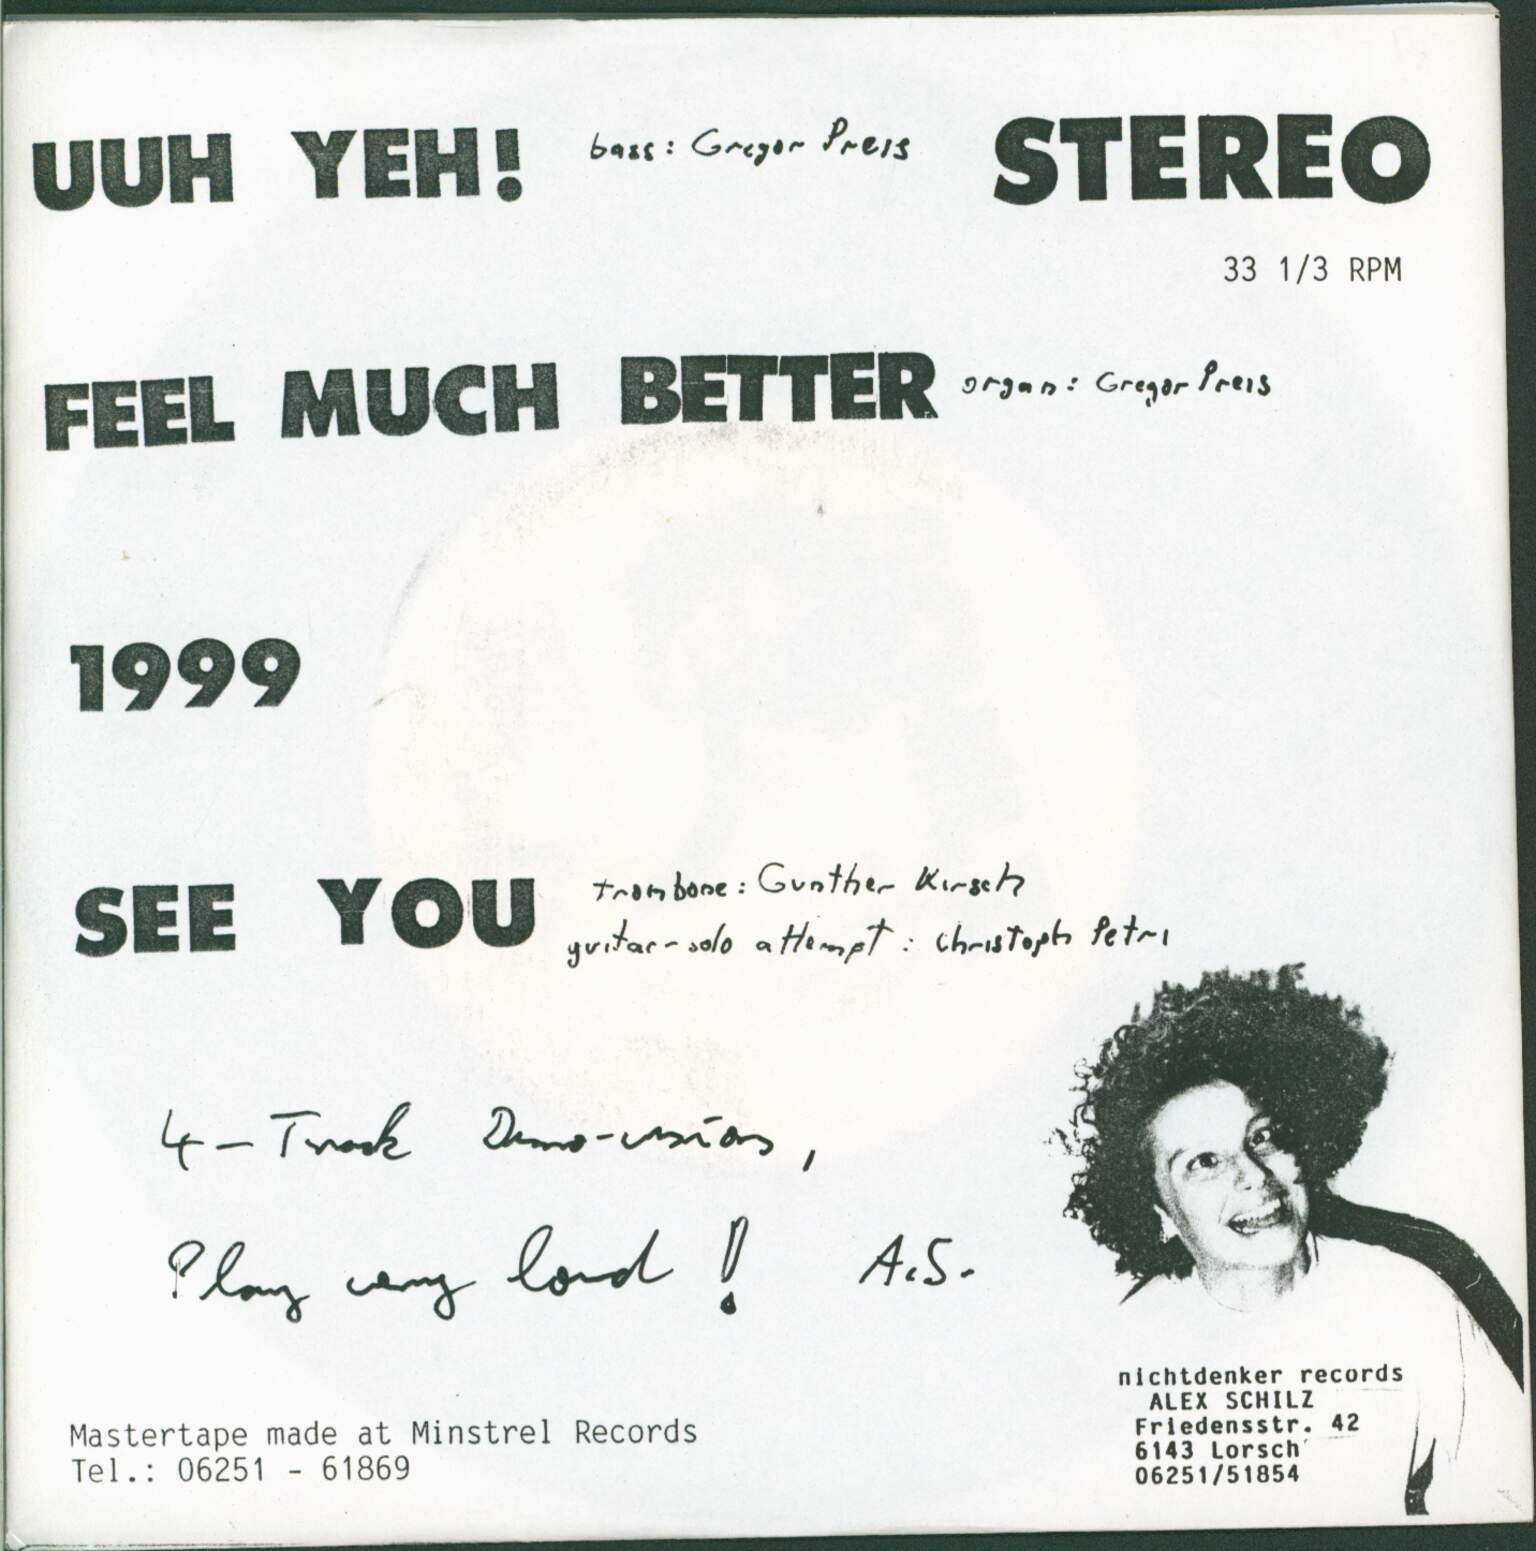 UUH YEH! bass: Gregor Preis STEREO
33 1/3 RPM
FEEL MUCH BETTER organ: Gregor Preis
1999
SEE YOU trombone: Gunther Kirsch
guitar-solo attempt: Christoph Petri
4-Track Demo-versions,
Play very loud! A.S.
nichtdenker records
ALEX SCHILZ
Friedensstr. 42
6143 Lorsch
06251/51854
Mastertape made at Minstrel Records
Tel.: 06251 - 61869